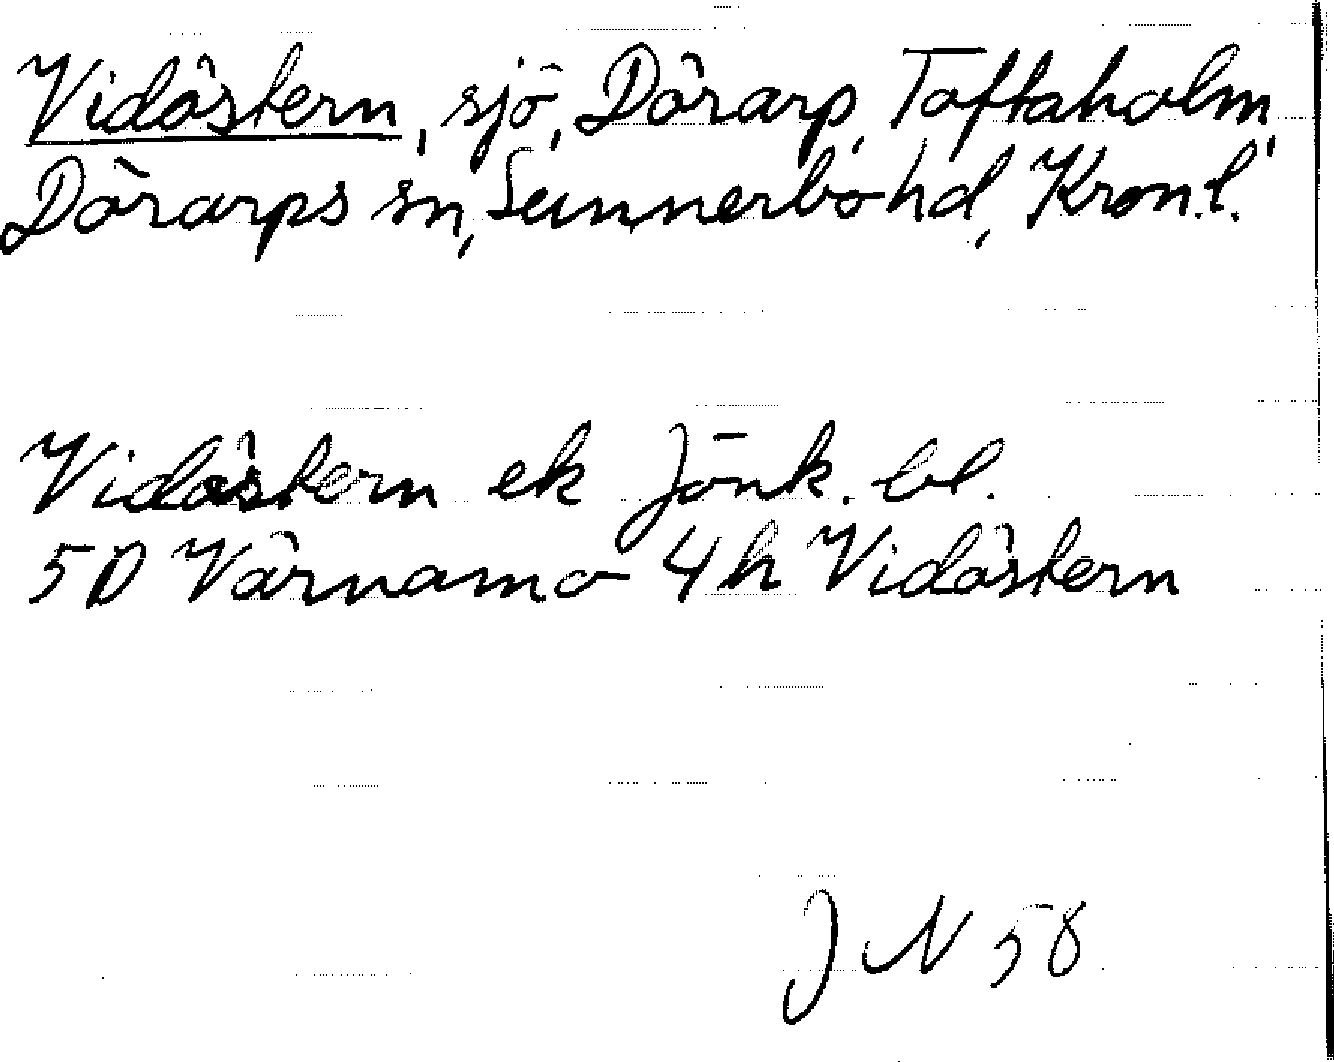 Vidöstern, sjö, Dörarp, Toftaholm,
Dörarps sn, Sunnerbo hd, Kron.l.
Vidöstern ek Jönk. bl.
5D Värnamo 4h Vidöstern
J N 58